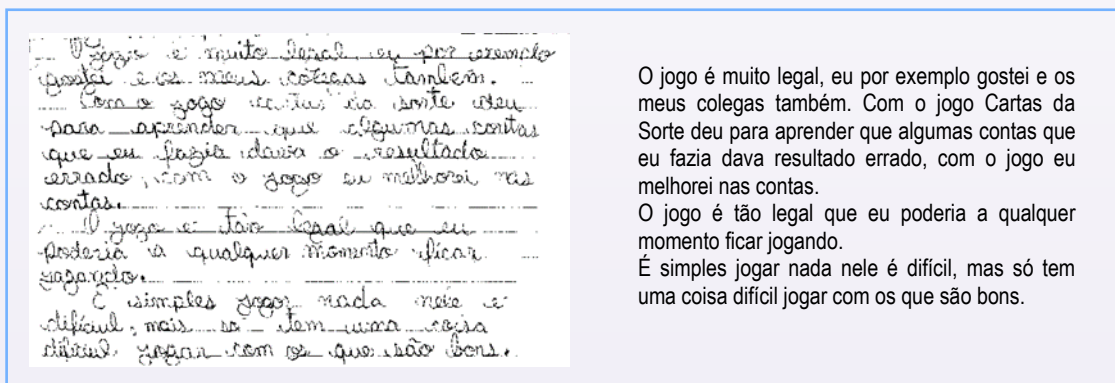 O jogo é muito legal, eu por exemplo
gostei e os meus colegas também.
Com o jogo cartas da sorte deu
para aprender que algumas contas
que eu fazia dava o resultado
errado, com o jogo eu melhorei nas
contas.
O jogo é tão legal que eu
poderia a qualquer momento ficar
jogando.
É simples jogar nada nele é
dificiul, mais só tem uma coisa
dificiul jogar com os que são bons.
O jogo é muito legal, eu por exemplo gostei e os
meus colegas também. Com o jogo Cartas da
Sorte deu para aprender que algumas contas que
eu fazia dava resultado errado, com o jogo eu
melhorei nas contas.
O jogo é tão legal que eu poderia a qualquer
momento ficar jogando.
É simples jogar nada nele é difícil, mas só tem
uma coisa difícil jogar com os que são bons.